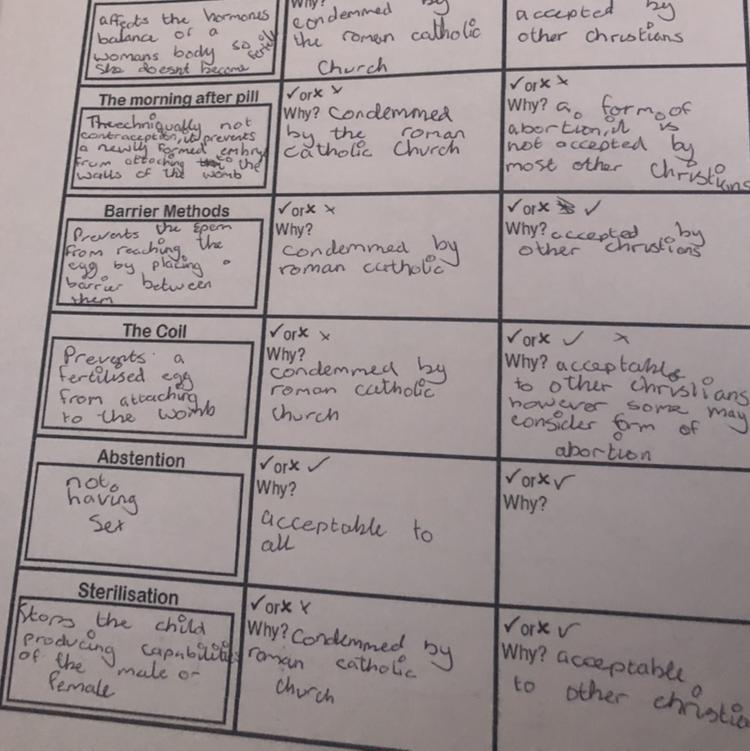 affects the hormones
balance of a
womans body so
she doesnt become
fertile
Why?
condemmed by
the roman catholic
Church
accepted by
other christians
The morning after pill
Theechniqually not
contraception, it prevents
a newly formed embryo
from attaching to the
walls of the womb
✓orx x
Why? Condemmed
by the roman
catholic Church
✓orx x
Why? a form of
abortion, it is
not accepted by
most other Christians
Barrier Methods
Prevents the sperm
from reaching the
egg by placing a
barrier between
them
✓orx x
Why?
condemmed by
roman catholic
✓orx ✓
Why? accepted by
other christians
The Coil
Prevents a
fertilised egg
from attaching
to the womb
✓orx x
Why?
condemmed by
roman catholic
church
✓orx ✓ x
Why? acceptable
to other christians
however some may
consider form of
abortion
Abstention
not
having
sex
✓orx ✓
Why?
acceptable to
all
✓orx ✓
Why?
Sterilisation
Stops the child
producing capabilities
of the male or
female
✓orx x
Why? Condemmed by
roman catholic
church
✓orx ✓
Why? acceptable
to other christia